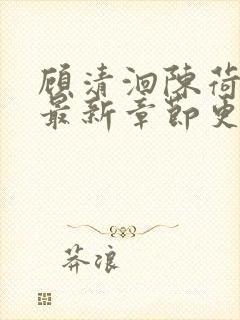 顾清洄陈荷
最新章节更
莽浪